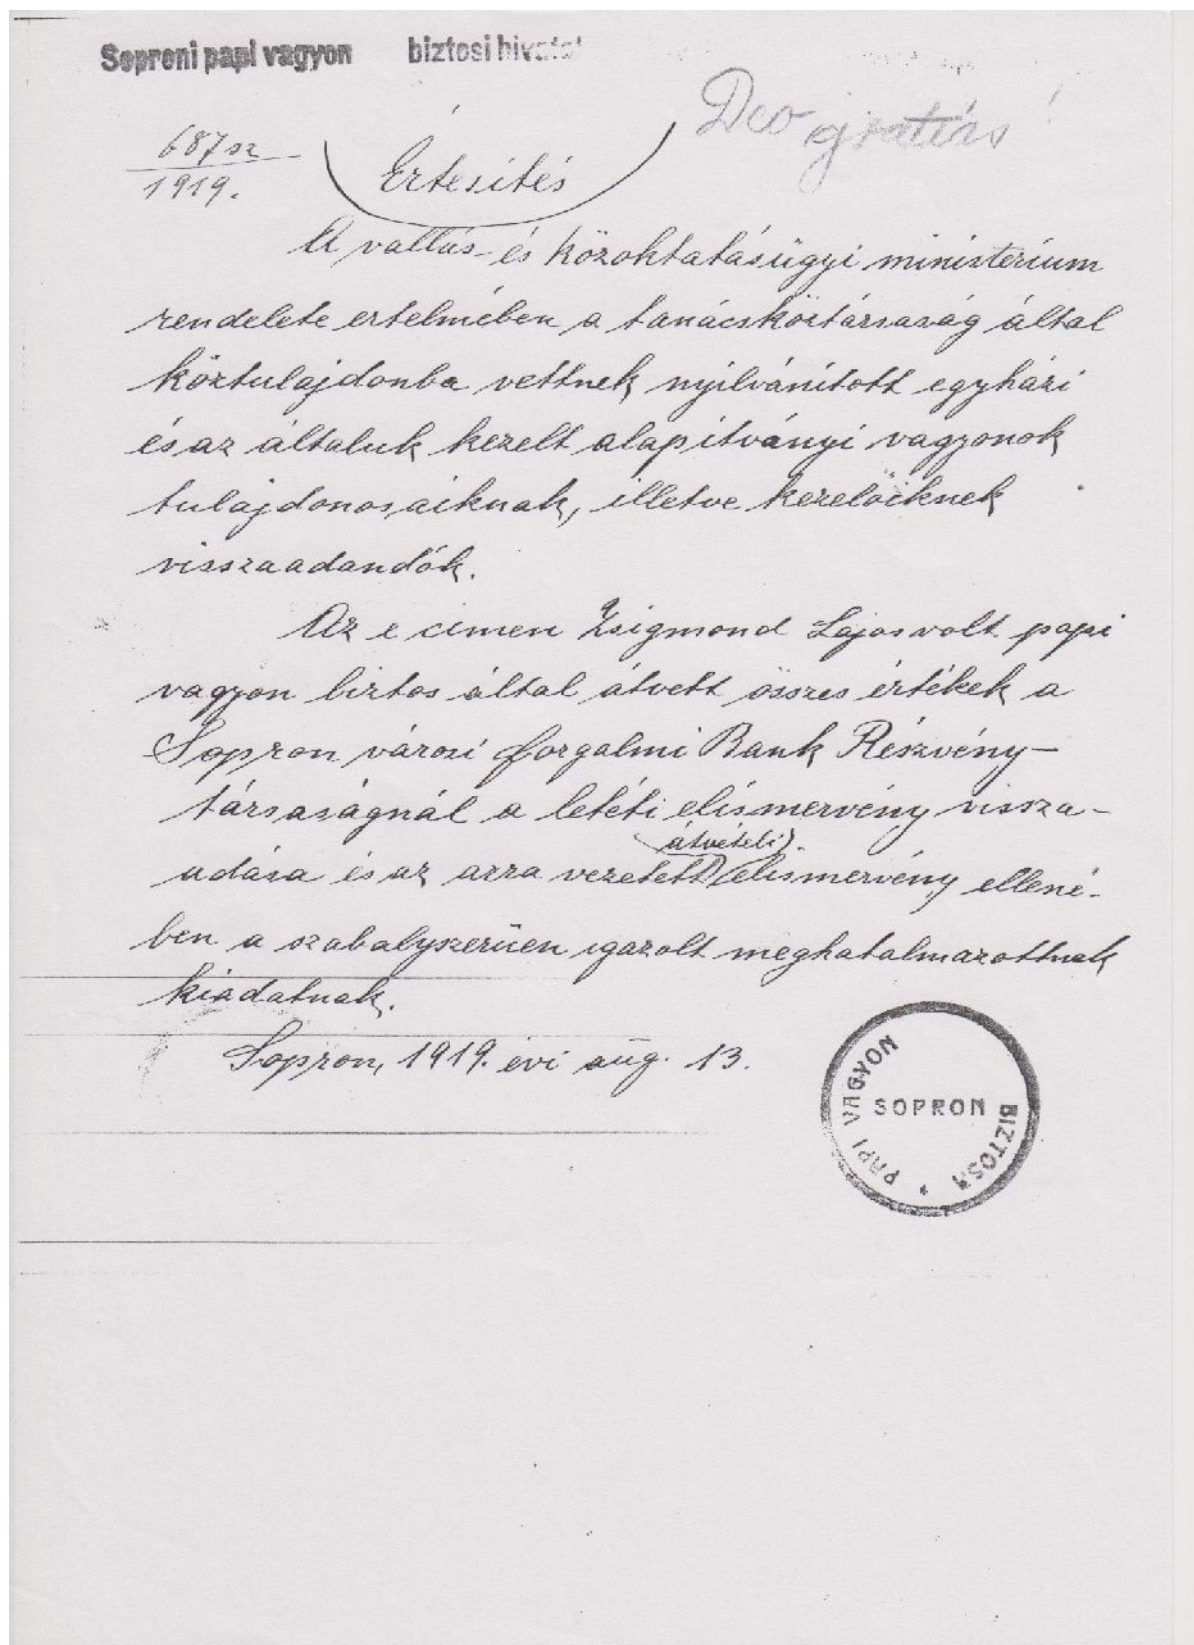 Soproni papi vagyon biztosi hivatal
Deo gratias!
687 sz
1919.
Értesités
A vallás- és közoktatásügyi ministerium
rendelete ertelmében a tanácsköztársaság által
köztulajdonba vettnek nyilvánitott egyházi
és az általuk kezelt alapitványi vagyonok
tulajdonosaiknak, illetve kezelőiknek
visszaadandók.
Az e cimen Zsigmond Lajos volt papi
vagyon biztos által átvett összes értékek a
Sopron városi forgalmi Bank Részvény-
társaságnál a letéti elismervény vissza-
átvételi
adása és az arra vezetett elismervény ellené-
ben a szabalyszerüen igazolt meghatalmazottnak
kiadatnak.
Sopron, 1919. évi aug. 13.
PAPI VAGYON BIZTOSA *
SOPRON